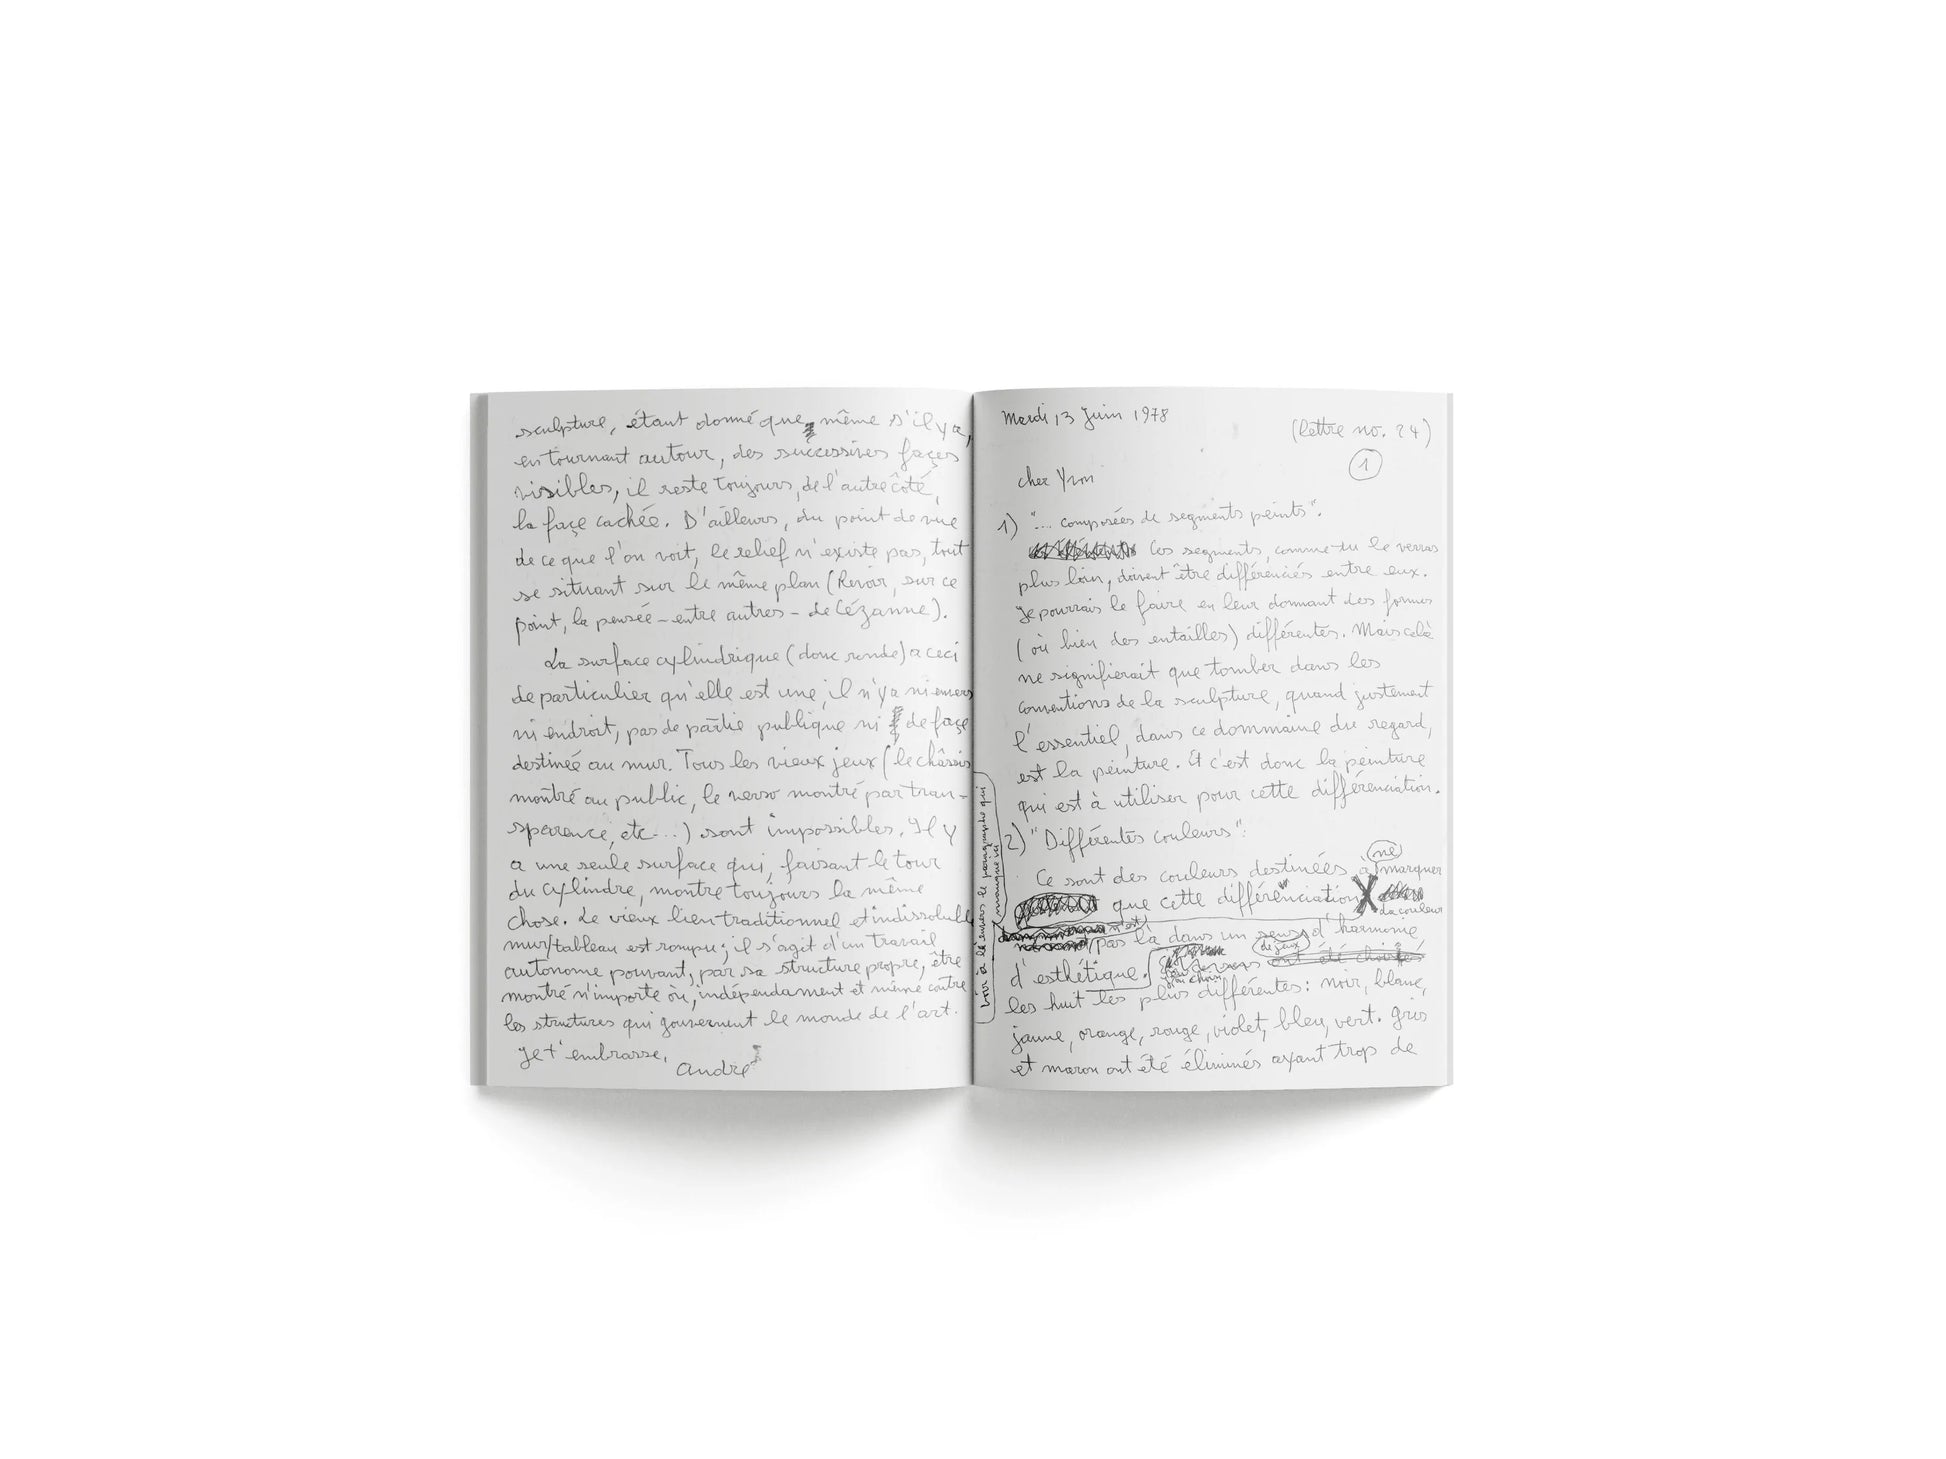 sculpture, étant donné que, même s'il y a,
en tournant autour, des successives façes
visibles, il reste toujours, de l'autre côté,
la façe cachée. D'ailleurs, du point de vue
de ce que l'on voit, le relief n'existe pas, tout
se situant sur le même plan (Revoir, sur ce
point, la pensée - entre autres - de Cézanne).
La surface cylindrique (donc ronde) a ceci
de particulier qu'elle est une, il n'y a ni envers
ni endroit, pas de partie publique ni de façe
destinée au mur. Tous les vieux jeux (le châssis
montré au public, le verso montré par tran-
sparence, etc...) sont impossibles. Il y
a une seule surface qui, faisant le tour
du cylindre, montre toujours la même
chose. Le vieux lien traditionnel et indissoluble
mur/tableau est rompu; il s'agit d'un travail
autonome pouvant, par sa structure propre, être
montré n'importe où, indépendament et même contre
les structures qui gouvernent le monde de l'art.
Je t'embrasse,
André
Mardi 13 Juin 1978
(lettre no. 24)
1
cher Yvon
1) "... composées de segments peints".
Ces segments, comme tu le verras
plus loin, doivent être différenciés entre eux.
Je pourrais le faire en leur donnant des formes
(où bien des entailles) différentes. Mais celà
ne signifierait que tomber dans les
conventions de la sculpture, quand justement
l'essentiel, dans ce dommaine du regard,
est la peinture. Et c'est donc la peinture
qui est à utiliser pour cette différenciation.
2) "Différentes couleurs":
ne
Ce sont des couleurs destinées à marquer
que cette différenciation
La couleur
n'est
pas là dans un sens d'harmonie
de jeux
d'esthétique. ont été choisies
j'ai choisi
les huit les plus différentes: noir, blanc,
jaune, orange, rouge, violet, bleu, vert. Gris
et maron ont été éliminés ayant trop de
voir à l'envers le paragraphe qui
manque ici